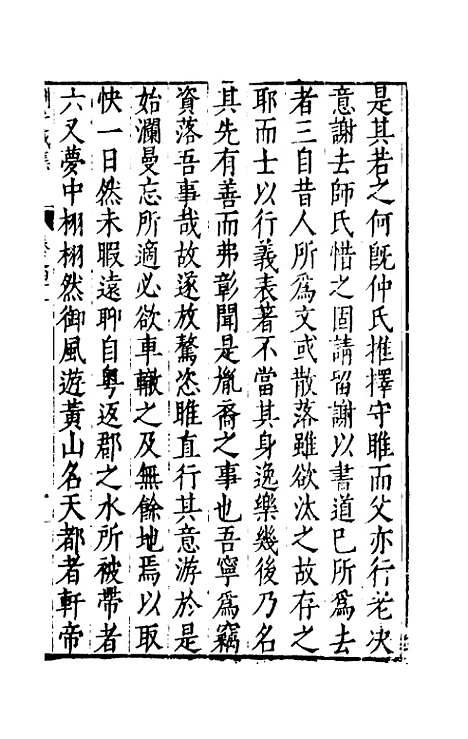 是其若之何既仲氏推擇守睢而父亦行老决
意謝去師氏惜之固請留謝以書道已所爲去
者三自昔人所爲文或散落雖欲汰之故存之
耶而士以行義表著不當其身逸樂幾後乃名
其先有善而弗彰聞是胤裔之事也吾寧爲竊
資落吾事哉故遂放驁恣睢直行其意游於是
始瀾曼忘所適必欲車轍之及無餘地焉以取
快一日然未暇遠聊自粤返郡之水所被帶者
六又夢中栩栩然御風遊黄山名天都者軒帝